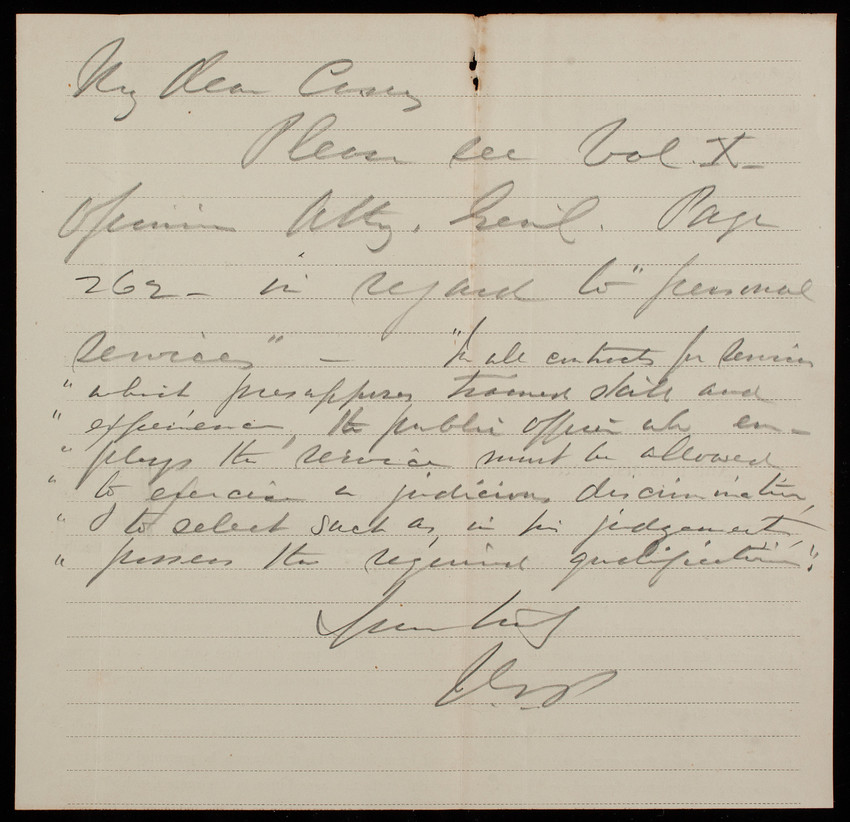 My Dear Casey
Please see Vol. X-
Opinion Atty. Genl. Page
262- in regard to "personal
services" - "In all contracts for services
" which presupposes trained skill and
" experience, the public officer who em-
" ploys the service must be allowed
" to exercise a judicious discrimination,
" to select such as, in his judgement,
" possess the required qualifications".
Yours truly